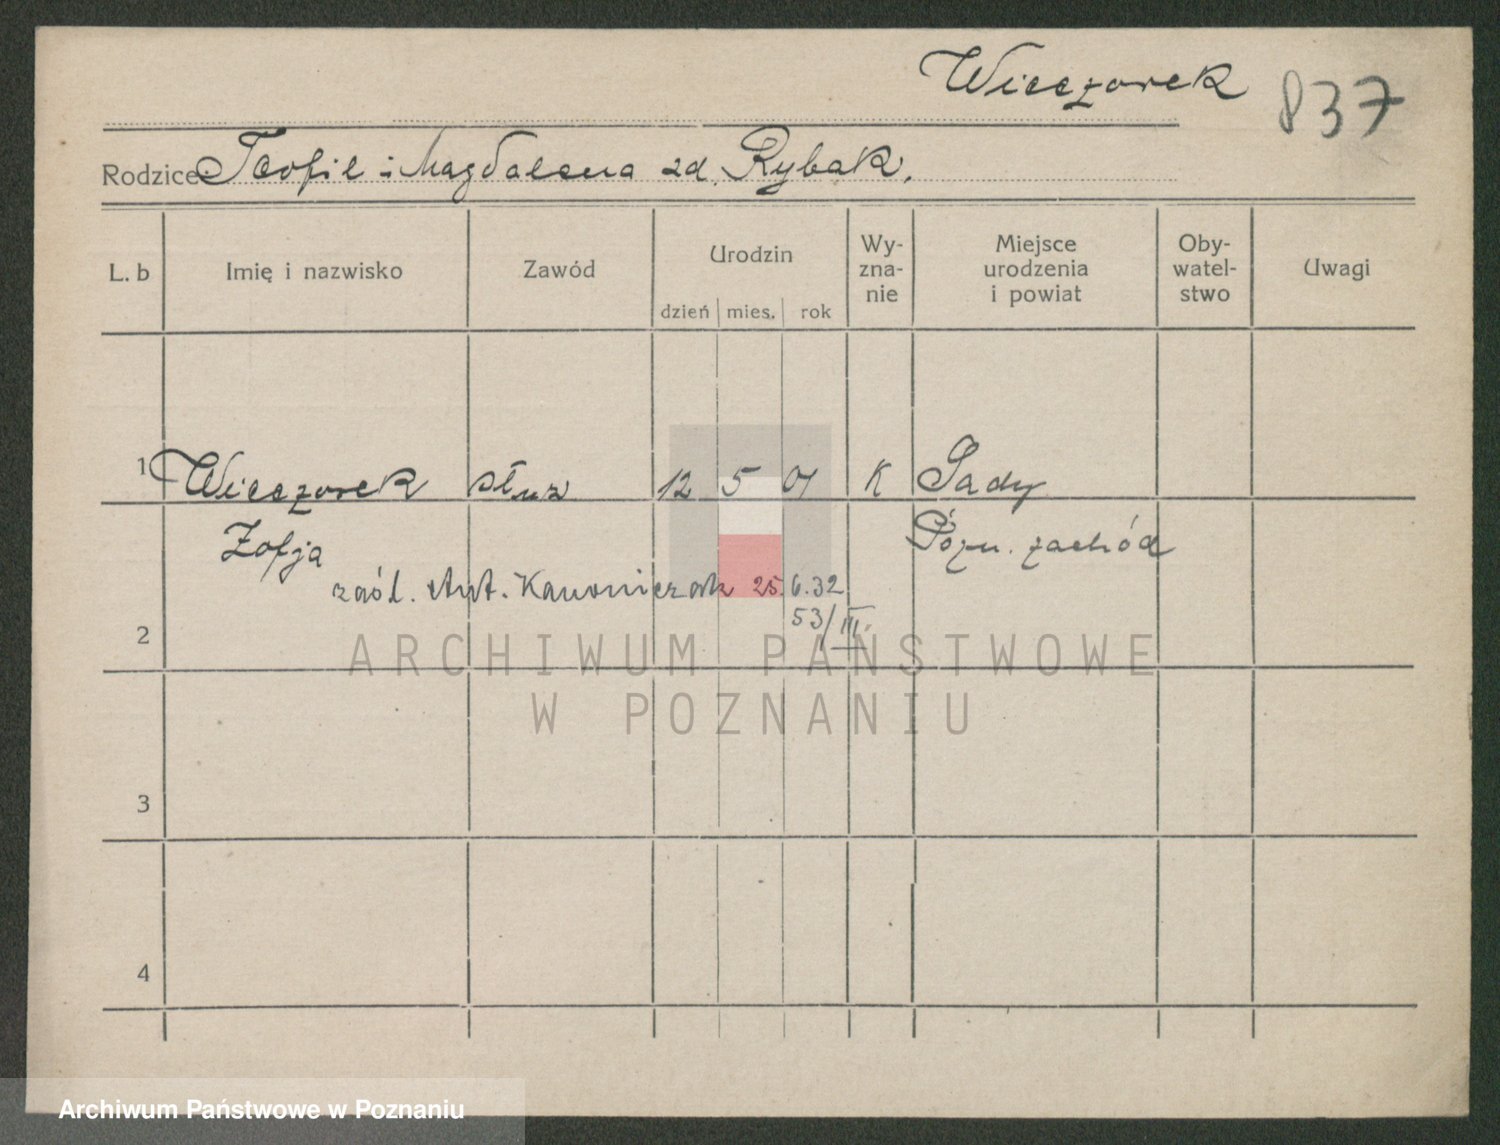 Wieczorek 837
Rodzice: Teofil i Magdalena zd. Rybak.
L. b
Imię i nazwisko
Zawód
Urodzin
dzień mies. rok
Wy-
zna-
nie
Miejsce
urodzenia
i powiat
Oby-
watel-
stwo
Uwagi
1 Wieczorek służ 12 5 01 K Sady
Zofja Pozn. zachód
zaśl. Ant. Kanoniczak 25.6.32
53/III.
2
ARCHIWUM PAŃSTWOWE
W POZNANIU
3
4
Archiwum Państwowe w Poznaniu